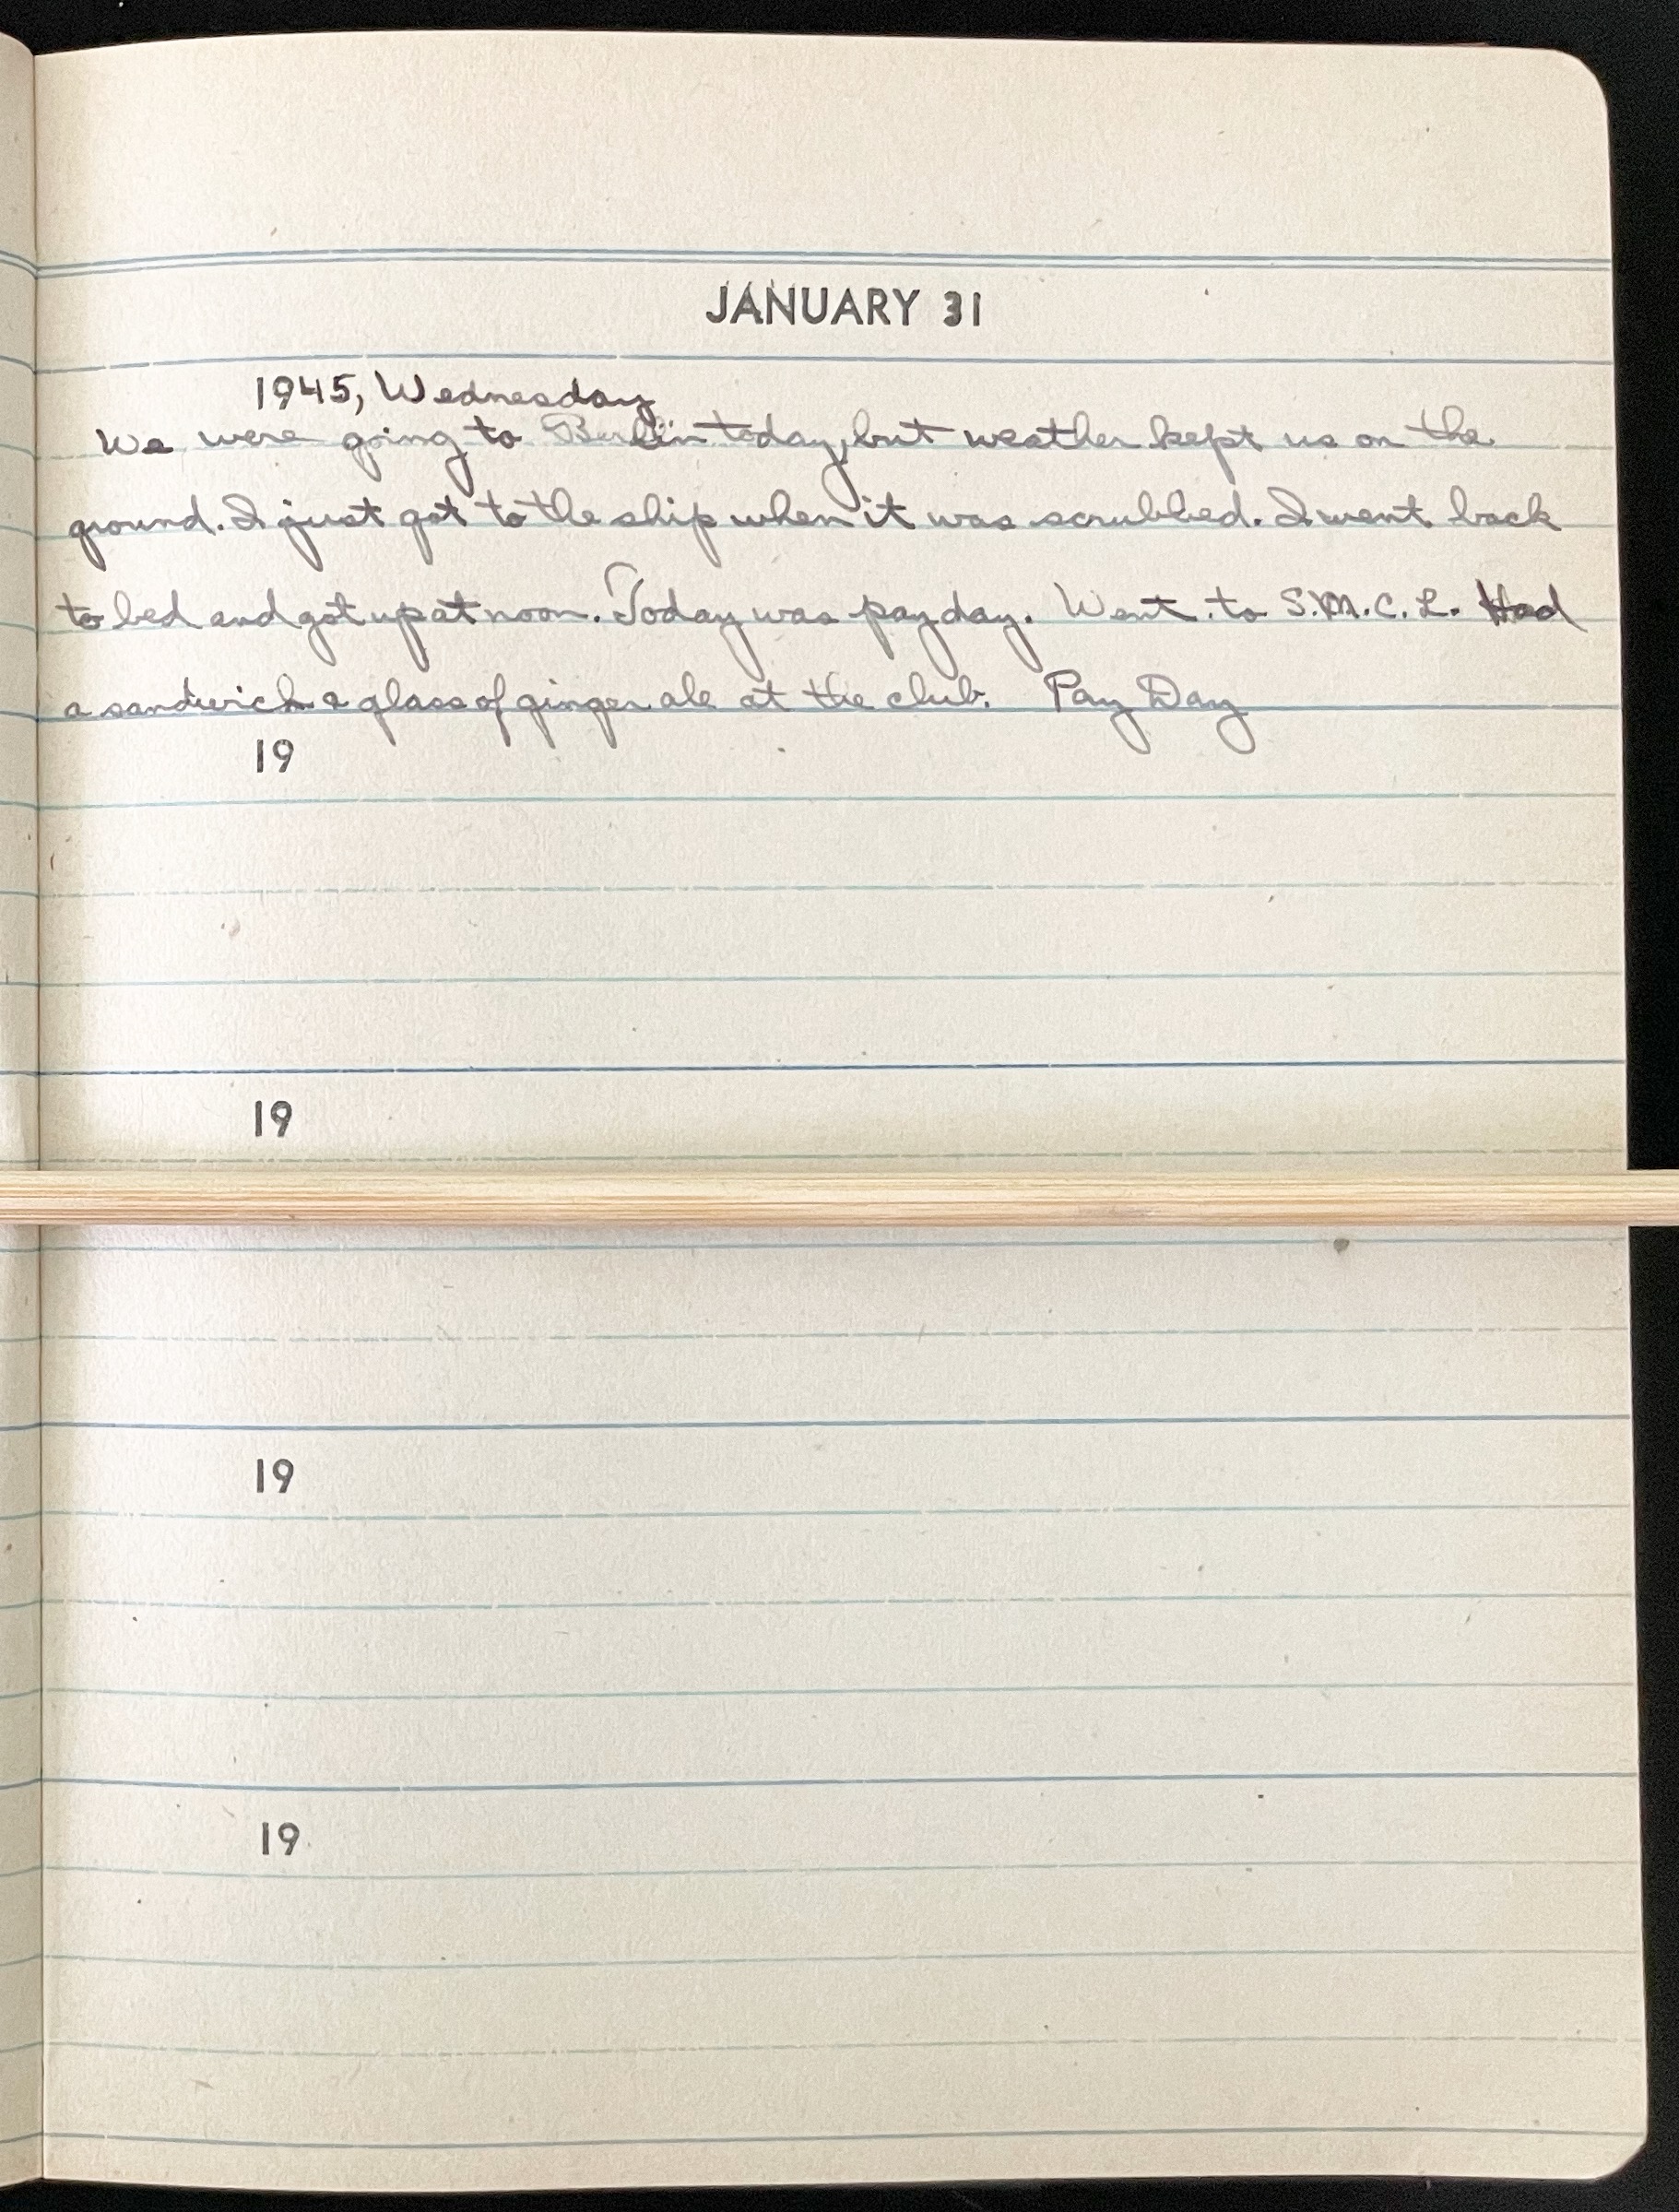 JANUARY 31
1945, Wednesday
We were going to Berlin today, but weather kept us on the
ground. I just got to the ship when it was scrubbed. I went back
to bed and got up at noon. Today was payday. Went to S.M.C.L. Had
a sandwich & glass of ginger ale at the club. Pay Day
19
19
19
19